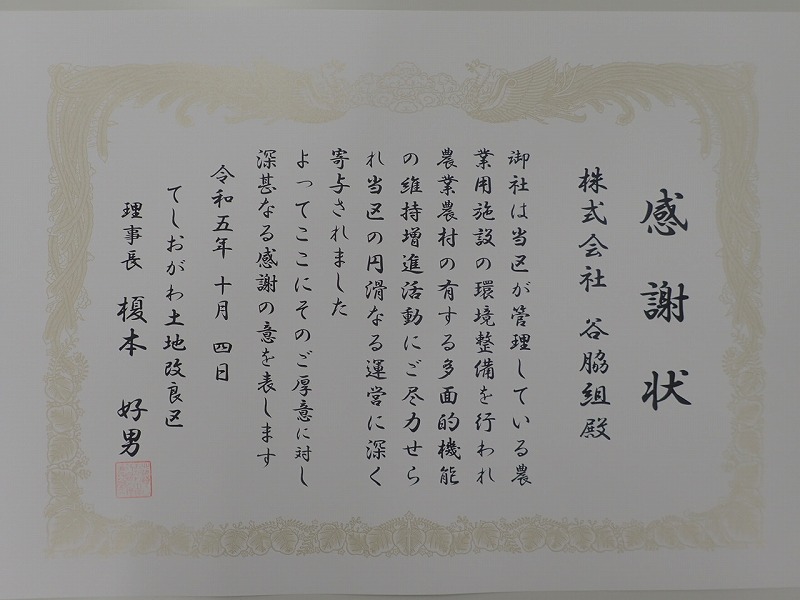 感謝状
株式会社 谷脇組殿
御社は当区が管理している農
業用施設の環境整備を行われ
農業農村の有する多面的機能
の維持増進活動にご尽力せら
れ当区の円滑なる運営に深く
寄与されました
よってここにそのご厚意に対し
深甚なる感謝の意を表します
令和五年 十月 四日
てしおがわ土地改良区
理事長 榎本 好男